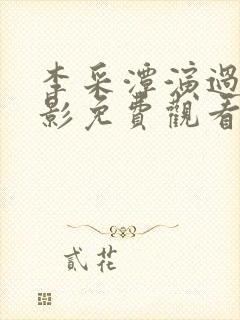 李采潭演過
影免費觀看
貳花